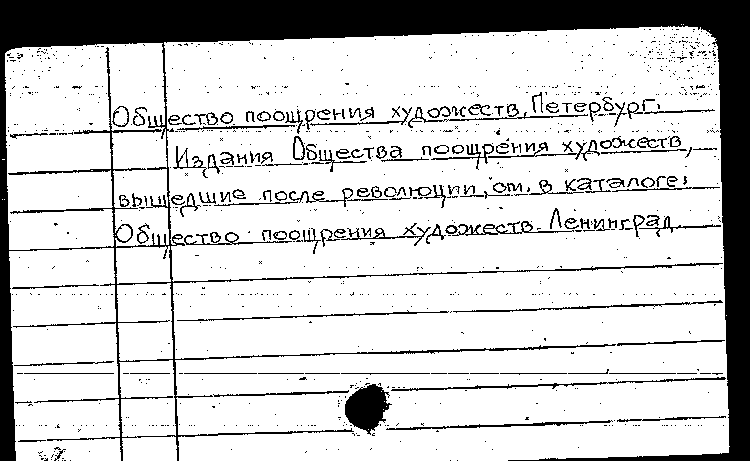 Общество поощрения художеств, Петербург.
Издания Общества поощрения художеств,
вышедшие после революции, см. в каталоге:
Общество поощрения художеств. Ленинград.